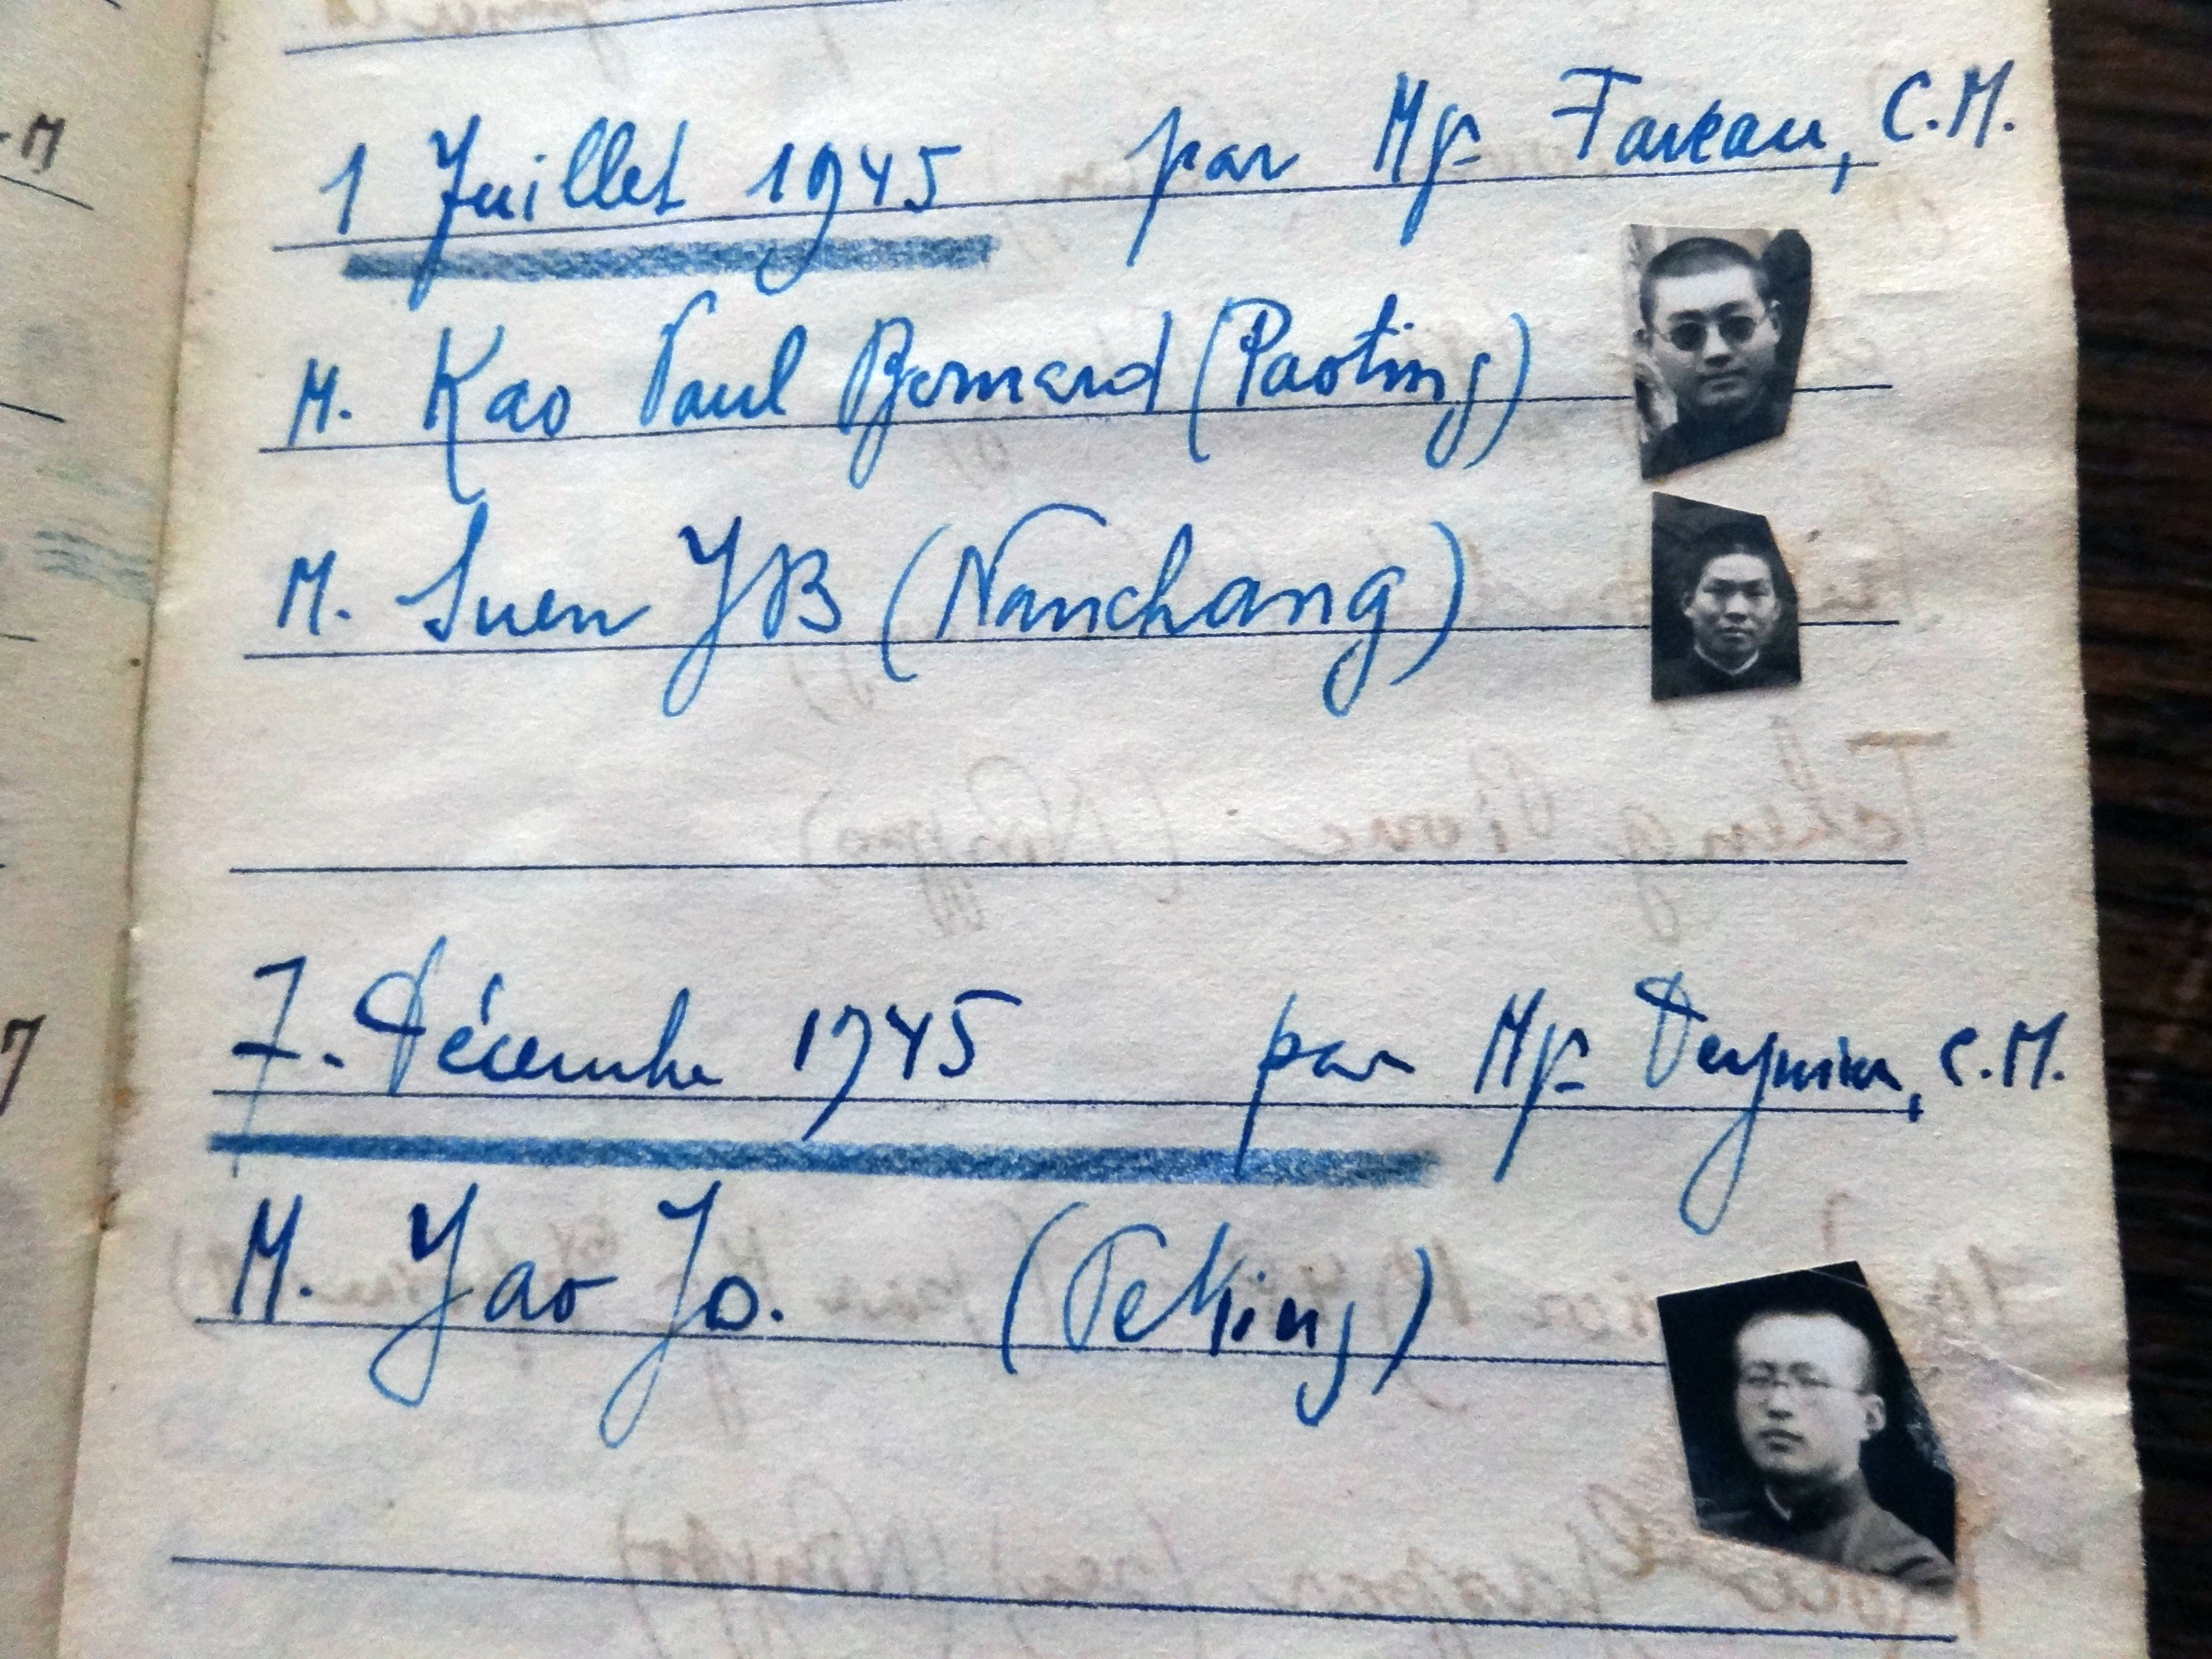 1 Juillet 1945 par Mgr Faveau, C.M.
M. Kao Paul Bernard (Paoting)
M. Suen JB (Nanchang)
7. Décembre 1945 par Mgr Deymier, C.M.
M. Yao Jo. (Peking)